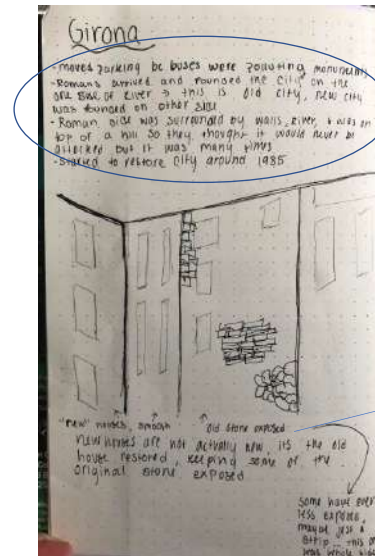 Girona
- moved parking bc buses were polluting monuments
- Romans arrived and founded the city on the
one side of river → this is old city, new city
was founded on other side
- Roman side was surrounded by walls, river, & was on
top of a hill so they thought it would never be
attacked but it was many times
- Started to restore city around 1985
"new" houses, smooth
old stone exposed
new houses are not actually new, its the old
house restored, keeping some of the
original stone exposed
some have even
less exposed,
maybe just a
strip... this